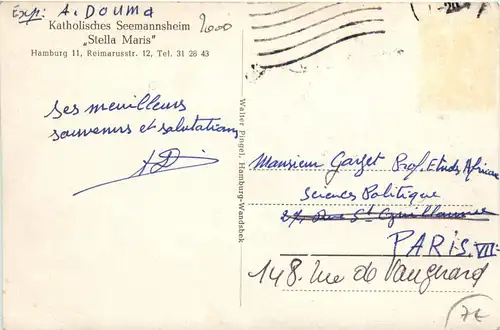 Exp: A. DOUMA
Katholisches Seemannsheim
„Stella Maris"
Hamburg 11, Reimarusstr. 12, Tel. 31 28 43
2000
ses meilleurs
souvenirs et salutations
AD
Walter Pingel, Hamburg-Wandsbek
Monsieur Prof. Etudes Africaines
Sciences Politique
27, Rue St Guillaume
PARIS. VII=
148. rue de Vaugirard
7E